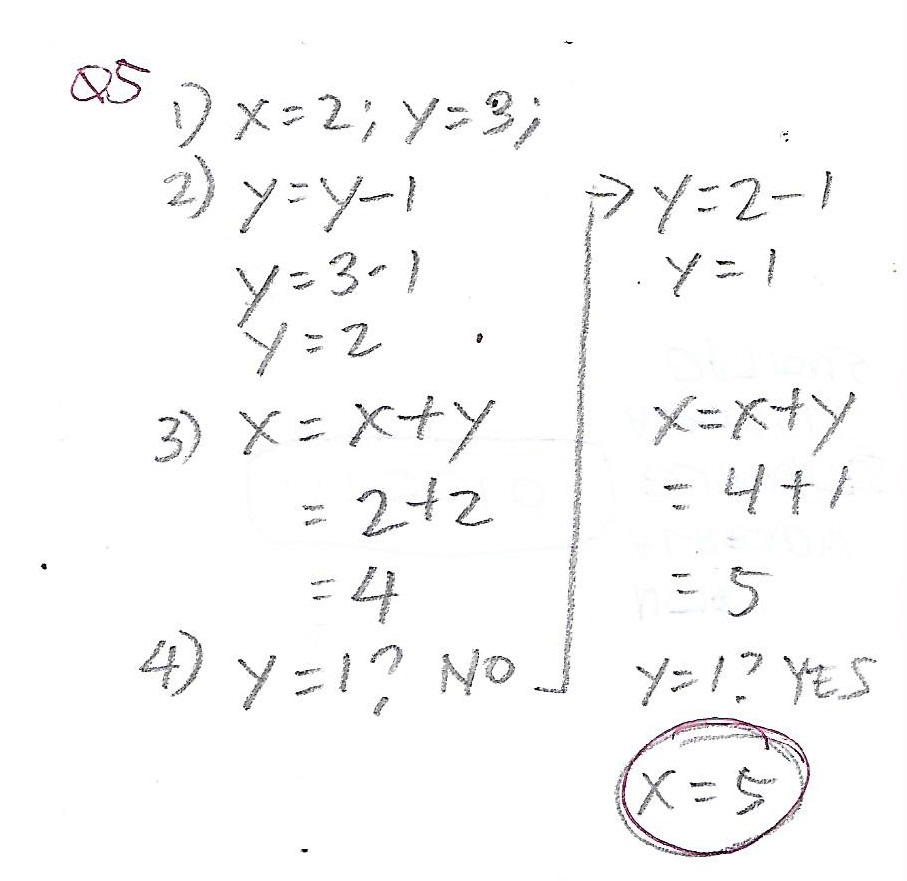 Q5
1) x=2; y=3;
2) y=y-1
y=3-1
y=2
3) x=x+y
=2+2
=4
4) y=1? NO
→ y=2-1
y=1
x=x+y
=4+1
=5
y=1? YES
x=5